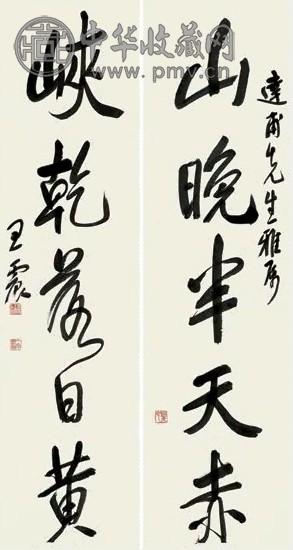 中华收藏网
www.pmv.cn
達甫先生雅属
山晚半天赤
峽乾落日黄
王震